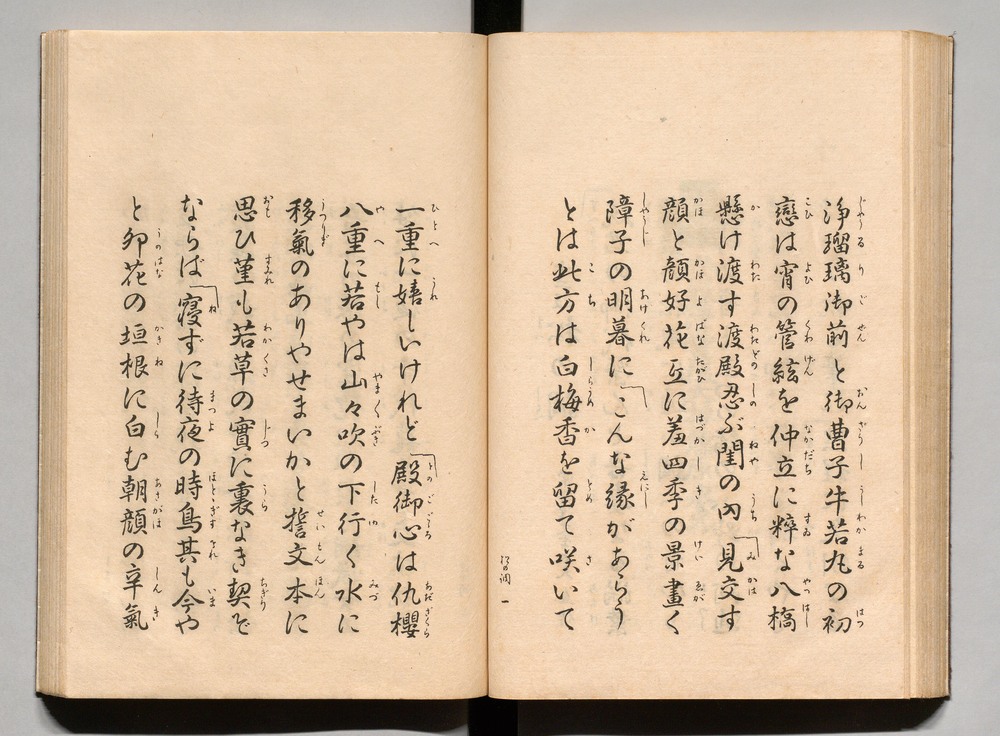 浄瑠璃御前と御曹子牛若丸の初
戀は宵の管絃を仲立に粹な八橋
懸け渡す渡殿忍ぶ閨の內「見交す
顔と顔好花互に羞四季の景畫く
障子の明暮に「こんな縁があらう
とは此方は白梅香を留て咲いて
一重に嬉しいけれど「殿御心は仇櫻
八重に若やは山々吹の下行く水に
移氣のありやせまいかと誓文本に
思ひ菫も若草の實に裏なき契ぞ
ならば「寝ずに待夜の時鳥其も今や
と卯花の垣根に白む朝顔の辛氣